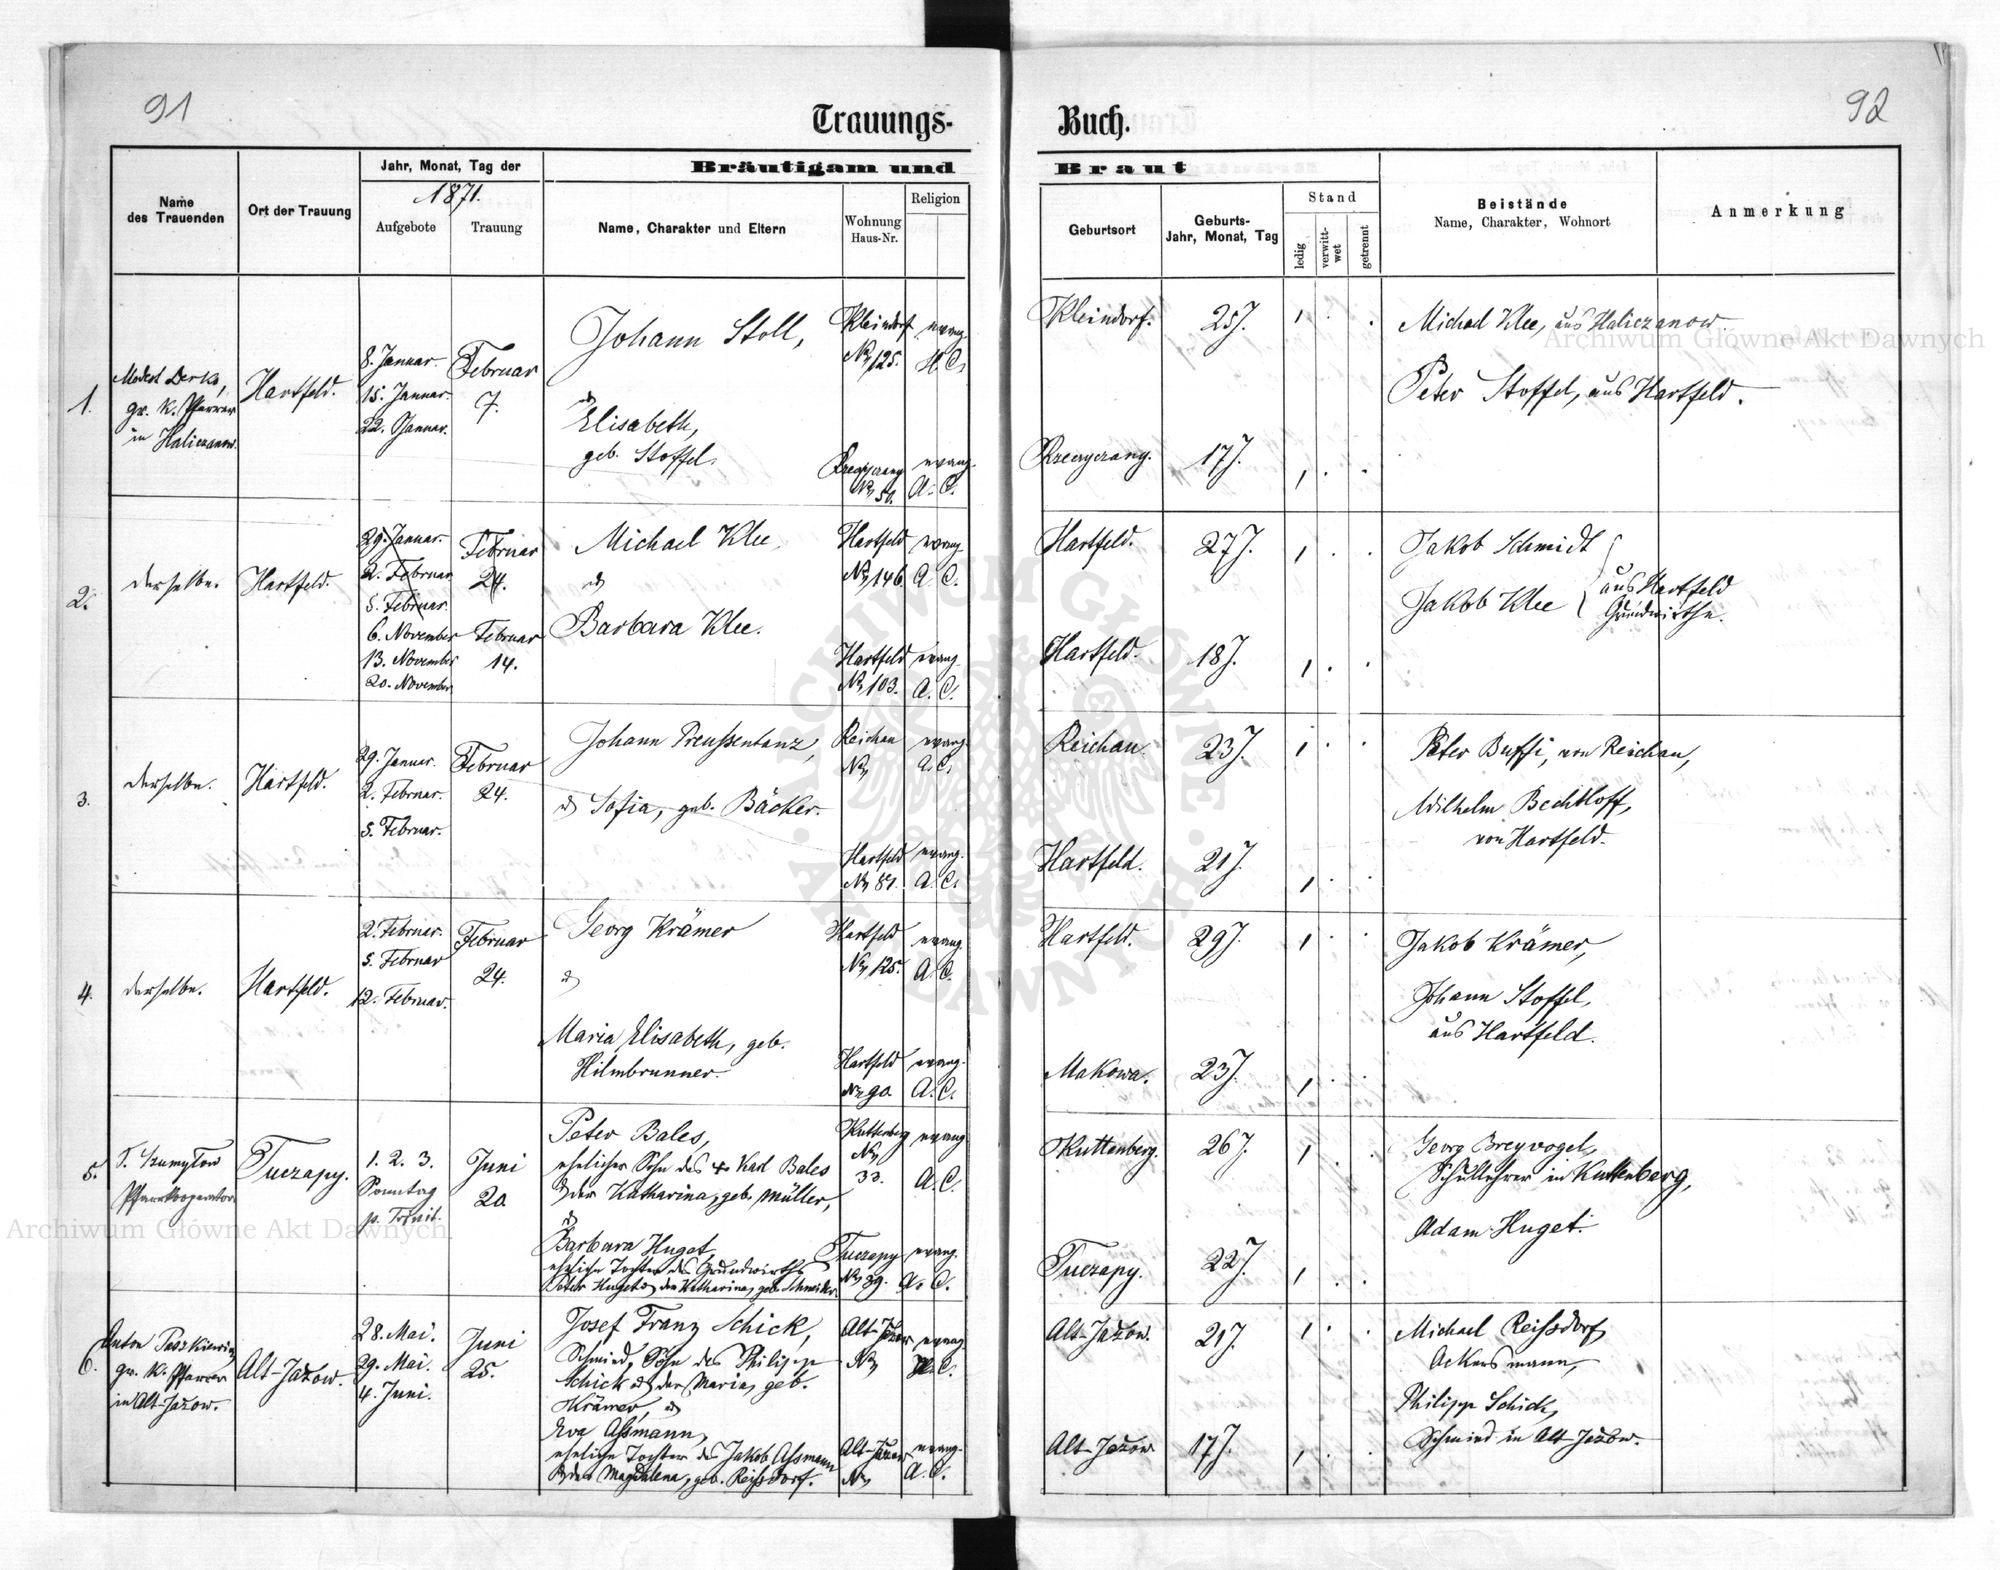 91
Trauungs-
Buch.
92
Name
des Trauenden
Ort der Trauung
Jahr, Monat, Tag der
1871.
Aufgebote
Trauung
Bräutigam und
Name, Charakter und Eltern
Wohnung
Haus-Nr.
Religion
Braut
Geburtsort
Geburts-
Jahr, Monat, Tag
Stand
ledig
verwitt-
wet
getrennt
Beistände
Name, Charakter, Wohnort
Anmerkung
1.
Modest Derko,
gr. k. Pfarrer
in Haliczanow.
Hartfeld.
8. Januar.
15. Januar.
22. Januar.
Februar
7.
Johann Stoll,
Kleindorf
No 125.
evang.
H. C.
Elisabeth,
geb. Stoffel.
No 51.
evang.
A. C.
Kleindorf.
25 J.
Michael Klee, aus Haliczanow.
Peter Stoffel, aus Hartfeld.
17 J.
2.
derselbe.
Hartfeld.
29. Januar.
2. Februar
5. Februar.
6. November
13. November
20. November
Februar
24.
Februar
14.
Michael Klee
Hartfeld
No 146
evang.
A. C.
Barbara Klee.
Hartfeld
No 103.
evang.
A. C.
Hartfeld.
27 J.
Jakob Schmidt
Jakob Klee
aus Hartfeld
Grundwirthe.
Hartfeld.
18 J.
3.
derselbe.
Hartfeld.
29. Januar.
2. Februar.
5. Februar.
Februar
24.
Johann Preussentanz,
Reichau
No
evang.
A. C.
Sofia, geb. Bäcker.
Hartfeld
No 81.
evang.
A. C.
Reichau.
23 J.
Peter Buffi, von Reichau,
Wilhelm Bechtloff,
von Hartfeld.
Hartfeld.
21 J.
4.
derselbe.
Hartfeld.
2. Februar.
5. Februar
12. Februar.
Februar
24.
Georg Krämer
Hartfeld
No 125.
evang.
A. C.
Maria Elisabeth, geb.
Hilmbrunner.
Hartfeld
No 90
evang.
A. C.
Hartfeld.
29 J.
Jakob Krämer,
Johann Stoffel,
aus Hartfeld.
Makowa.
23 J.
5.
Pfarrkooperator
Tuczapy.
1. 2. 3.
Sonntag
p. Trinit.
Juni
20.
Peter Bales,
ehelicher Sohn des + Karl Bales
& der Katharina, geb. Müller,
Kuttenberg
No
33.
evang.
A. C.
Barbara Huget,
eheliche Tochter des Grundwirths
Peter Huget & der Katharina, geb. Schneider.
Tuczapy
No 39.
evang.
A. C.
Kuttenberg.
26 J.
Georg Breyvogel,
Schullehrer in Kuttenberg,
Adam Huget.
Tuczapy.
22 J.
6.
Anton Paszkiewicz
gr. k. Pfarrer
in Alt-Jazow.
Alt-Jazow.
28. Mai.
29. Mai.
4. Juni.
Juni
25.
Josef Franz Schick,
Schmied, Sohn des Philipp
Schick & der Maria, geb.
Krämer, &
Eva Assmann,
eheliche Tochter des Jakob Assmann
& der Magdalena, geb. Reissdorf.
Alt-Jazow
No
evang.
H. C.
Alt-Jazow
No
evang.
A. C.
Alt-Jazow.
21 J.
Michael Reissdorf
Ackersmann,
Philipp Schick,
Schmied in Alt-Jazow.
Alt-Jazow
17 J.
Archiwum Główne Akt Dawnych
Archiwum Główne Akt Dawnych
ARCHIWUM GŁÓWNE AKT DAWNYCH